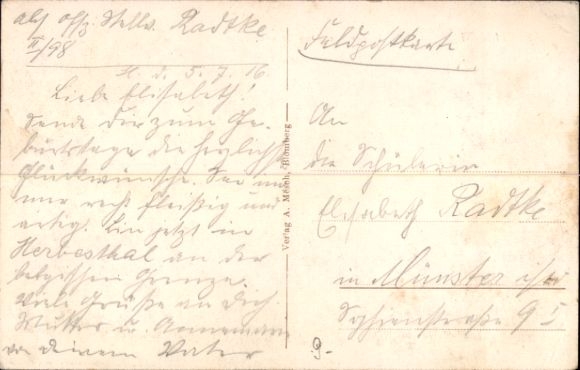 Abs. Offz. Stellv. Radtke
II/98
d. 5.7.16
Liebe Elisabeth!
Sende Dir zum Ge-
burtstage die herzlichste
Glückwünsche. Sei nun
nur recht fleißig und
artig. Bin jetzt in
Herbesthal an der
belgischen Grenze.
Viele Grüße an Dich
Mutter u. Annemarie
von Deinem Vater
Verlag A. Mesch, Blomberg
Feldpostkarte
An
die Schülerin
Elisabeth Radtke
in Münster i/W
Sophienstraße 9 I